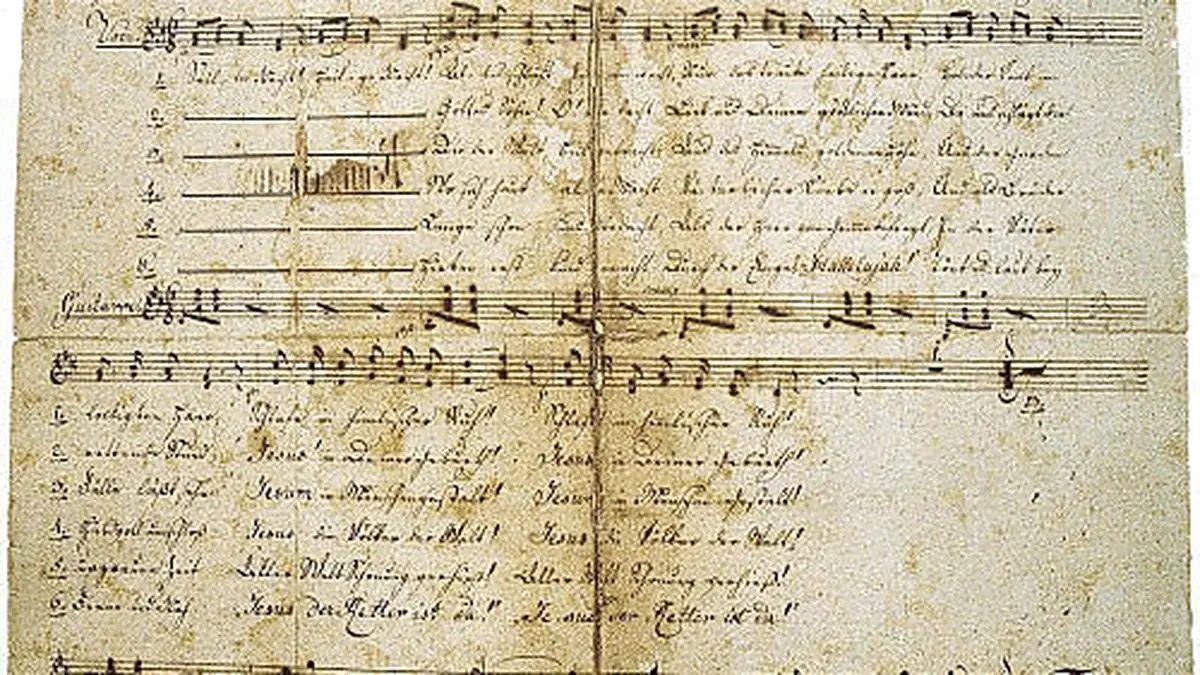 Voce.
1. Stille Nacht! Heilige Nacht! Alles schläft. Einsam wacht, Nur das traute heilige Paar. Holder Knab' im
2. Gottes Sohn! O! wie lacht Lieb' aus Deinem göttlichen Mund, Da uns schlägt die
3. Die der Welt Heil gebracht, Aus des Himmels goldnen Höhn, Uns der Gnaden
4. Wo sich heut alle Macht Väterlicher Liebe ergoß, Und als Bruder
5. Lange schon uns bedacht, Als der Herr vom Grimme befreyt In der Väter
6. Hirten erst kundgemacht Durch der Engel "Hallelujah!" Tönt es laut bey
Guitarre.
1. lockigten Haar, Schlafe in himmlischer Ruh! Schlafe in himmlischer Ruh!
2. rettende Stund. Jesus! in Deiner Geburth! Jesus in Deiner Geburth!
3. Fülle läßt seh'n Jesum in Menschengestalt! Jesum in Menschengestalt!
4. Huldvoll umschloß Jesus die Völker der Welt! Jesus die Völker der Welt!
5. urgrauer Zeit Aller Welt Schonung verhieß! Aller Welt Schonung verhieß!
6. Ferne und Nah: "Jesus der Retter ist da!" "Jesus der Retter ist da!"